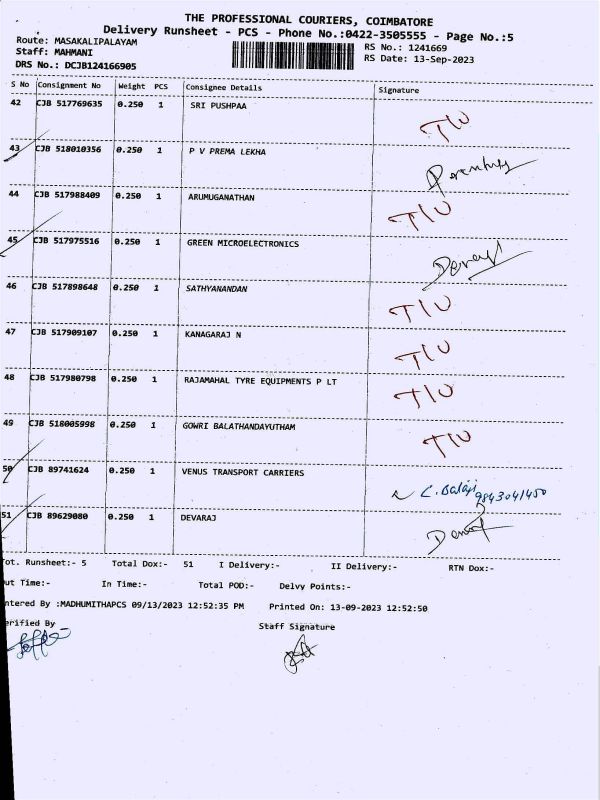 THE PROFESSIONAL COURIERS, COIMBATORE
Delivery Runsheet - PCS - Phone No.:0422-3505555 - Page No.:5
Route: MASAKALIPALAYAM RS No.: 1241669
Staff: MAHMANI RS Date: 13-Sep-2023
DRS No.: DCJB124166905
S No Consignment No Weight PCS Consignee Details Signature
42 CJB 517769635 0.250 1 SRI PUSHPAA T/U
43 CJB 518010356 0.250 1 P V PREMA LEKHA
44 CJB 517988409 0.250 1 ARUMUGANATHAN T/U
45 CJB 517975516 0.250 1 GREEN MICROELECTRONICS
46 CJB 517898648 0.250 1 SATHYANANDAN T/U
47 CJB 517909107 0.250 1 KANAGARAJ N T/U
48 CJB 517980798 0.250 1 RAJAMAHAL TYRE EQUIPMENTS P LT T/U
49 CJB 518005998 0.250 1 GOWRI BALATHANDAYUTHAM T/U
50 CJB 89741624 0.250 1 VENUS TRANSPORT CARRIERS C. Balaji 9843041450
51 CJB 89629080 0.250 1 DEVARAJ
ot. Runsheet:- 5 Total Dox:- 51 I Delivery:- II Delivery:- RTN Dox:-
ut Time:- In Time:- Total POD:- Delvy Points:-
ntered By :MADHUMITHAPCS 09/13/2023 12:52:35 PM Printed On: 13-09-2023 12:52:50
erified By Staff Signature